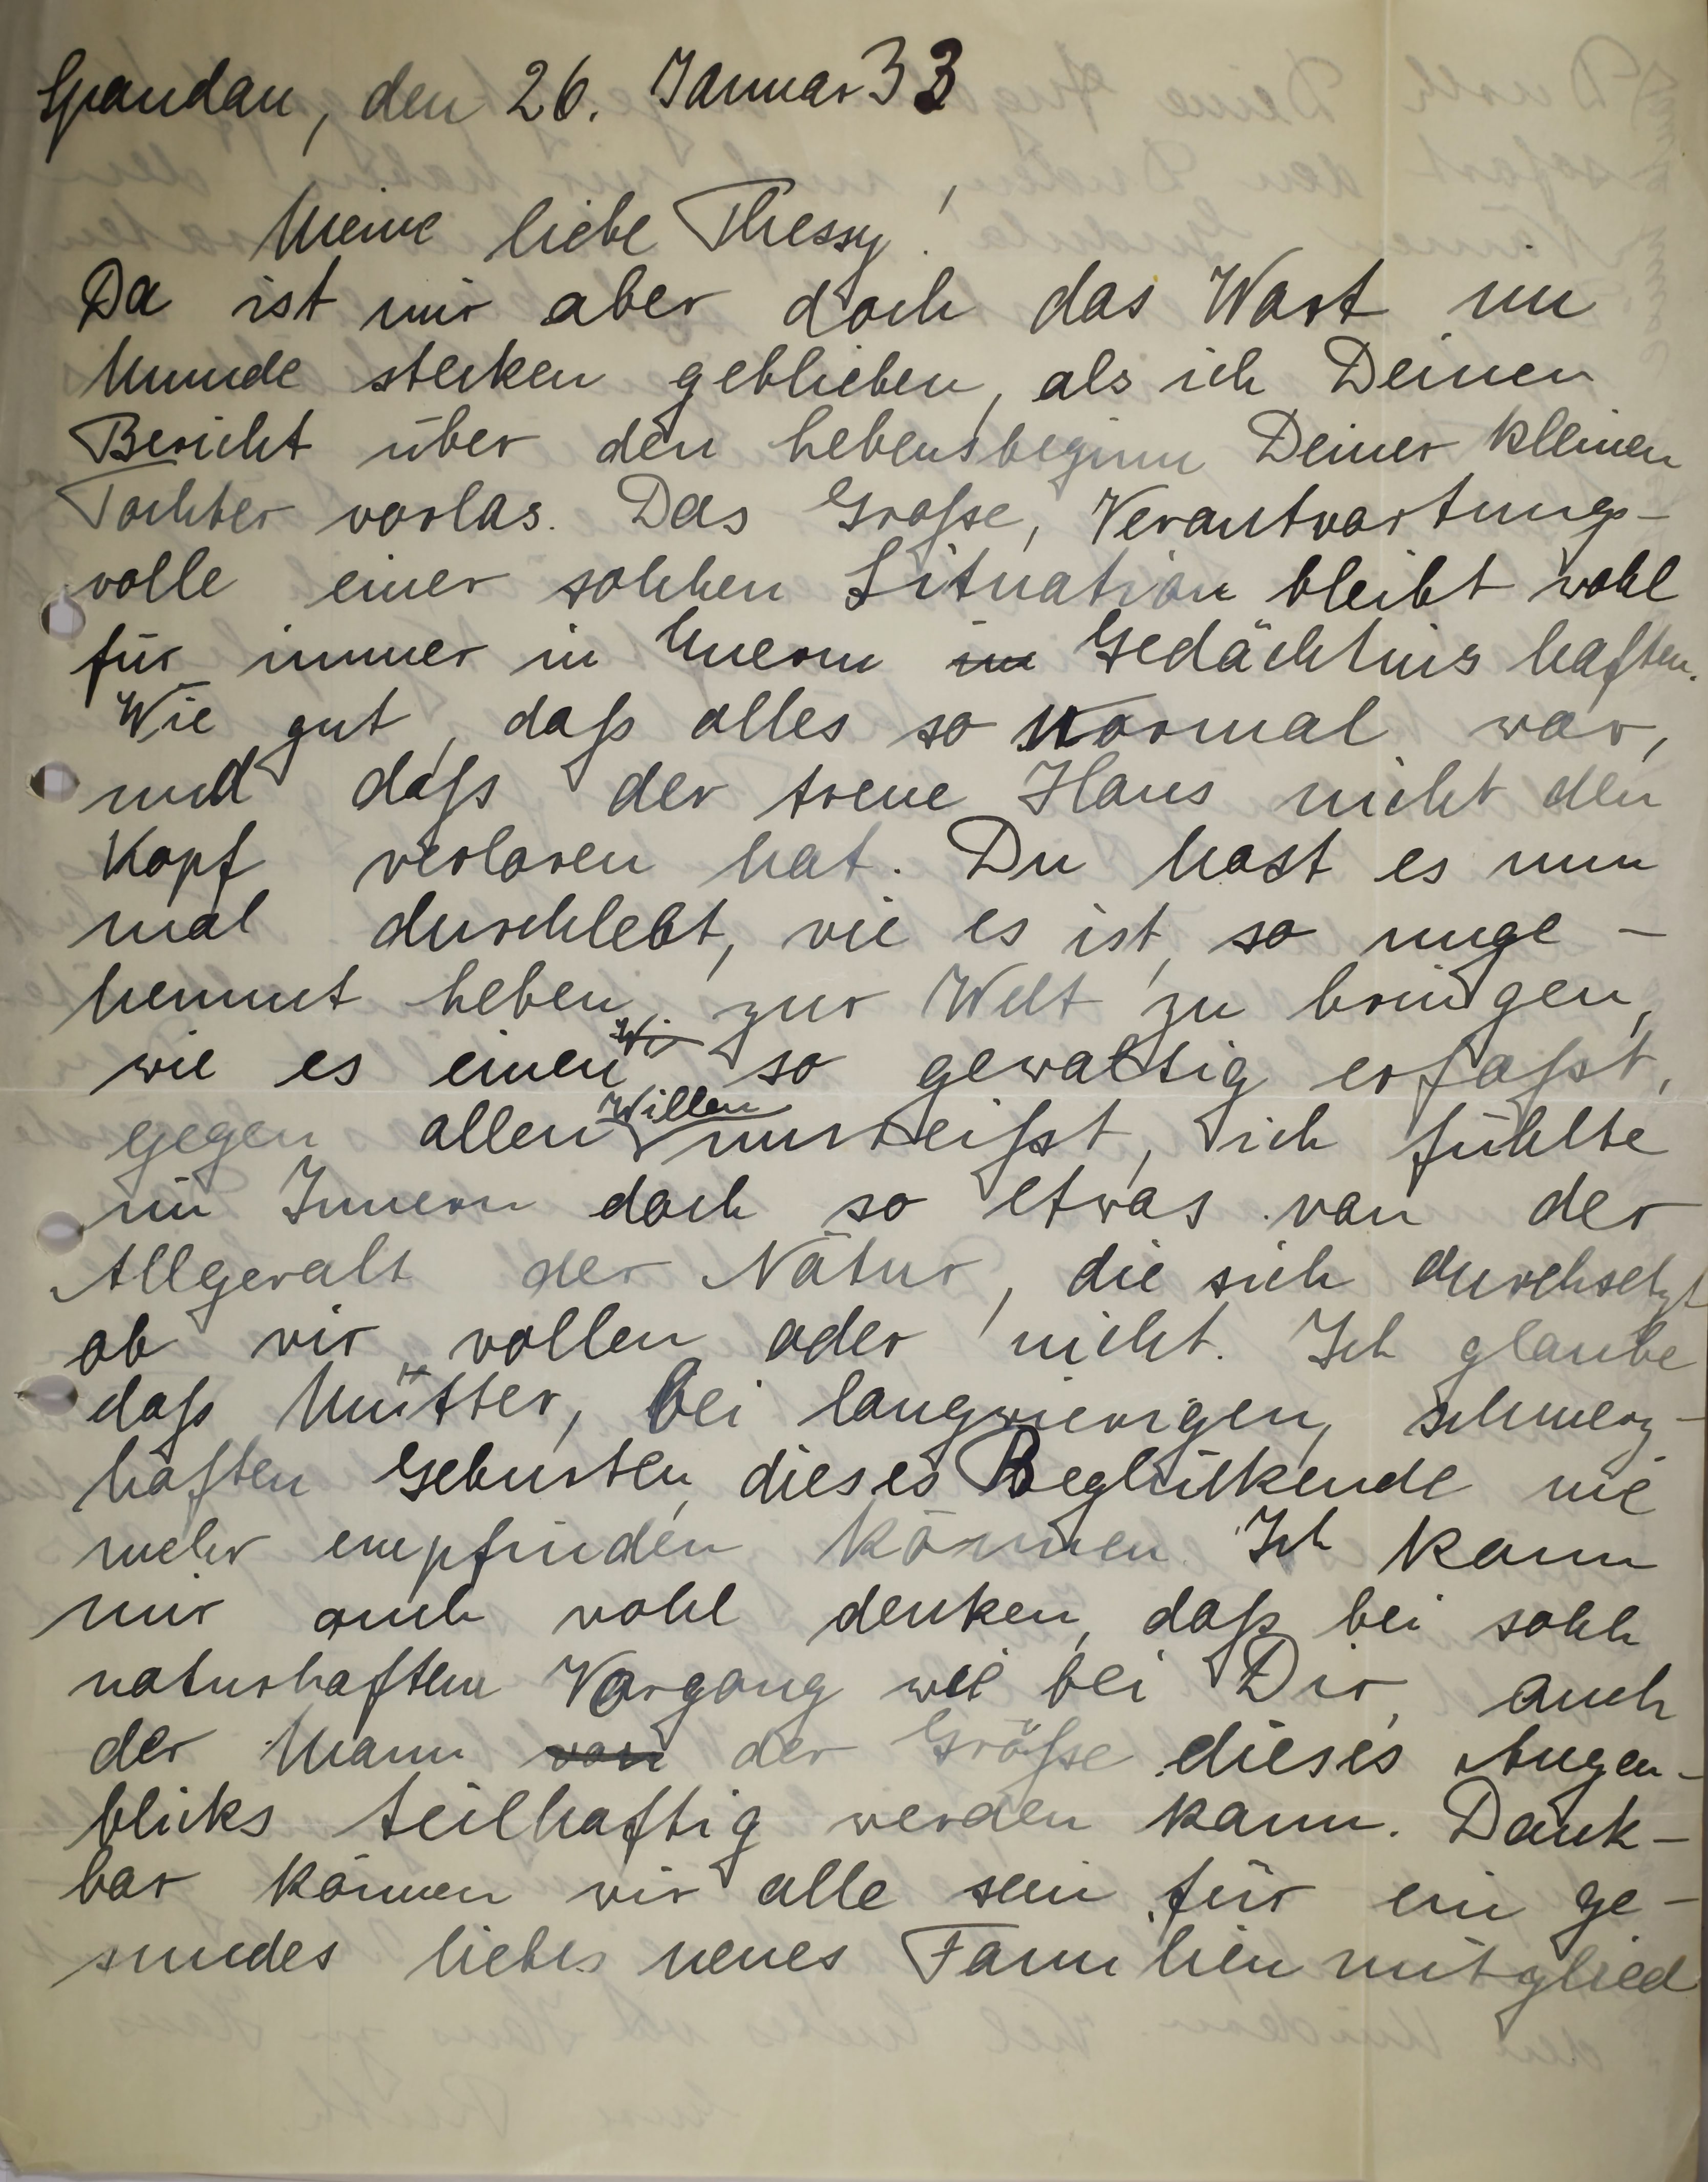 Spandau, den 26. Januar 33
Meine liebe Thessy!
Da ist mir aber doch das Wort im
Munde stecken geblieben, als ich Deinen
Bericht über den Lebensbeginn Deiner kleinen
Tochter vorlas. Das Große, Verantwortungs-
volle einer solchen Situation bleibt wohl
für immer in Euerm im Gedächtnis haften.
Wie gut, daß alles so normal war,
und daß der treue Hans nicht den
Kopf verloren hat. Du hast es nun
mal durchlebt, wie es ist, so unge-
hemmt Leben zur Welt zu bringen,
wie es einen Wi so gewaltig erfaßt,
gegen allen Willen mitreißt, ich fühlte
im Innern doch so etwas von der
Allgewalt der Natur, die sich durchsetzt
ob wir wollen oder nicht. Ich glaube
daß Mütter, bei langwierigen, schmerz-
haften Geburten, dieses Beglückende nie
mehr empfinden können. Ich kann
mir auch wohl denken, daß bei solch
naturhaftem Vorgang wie bei Dir, auch
der Mann von der Größe dieses Augen-
blicks teilhaftig werden kann. Dank-
bar können wir alle sein für ein ge-
sundes liebes neues Familienmitglied